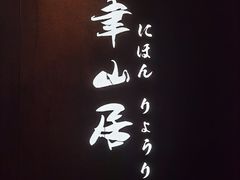 にほん りょうり
幸山居